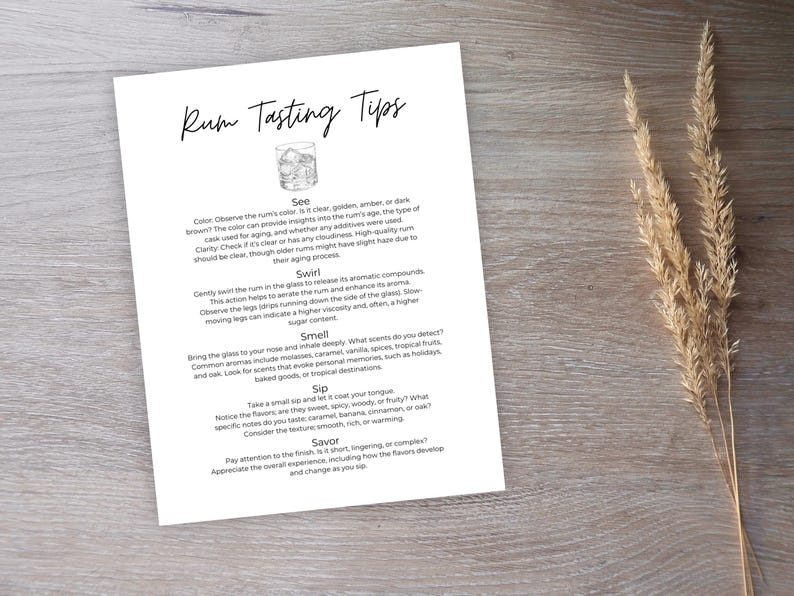 Rum Tasting Tips
See
Color: Observe the rum's color. Is it clear, golden, amber, or dark
brown? The color can provide insights into the rum's age, the type of
cask used for aging, and whether any additives were used.
Clarity: Check if it's clear or has any cloudiness. High-quality rum
should be clear, though older rums might have slight haze due to
their aging process.
Swirl
Gently swirl the rum in the glass to release its aromatic compounds.
This action helps to aerate the rum and enhance its aroma.
Observe the legs (drips running down the side of the glass). Slow-
moving legs can indicate a higher viscosity and, often, a higher
sugar content.
Smell
Bring the glass to your nose and inhale deeply. What scents do you detect?
Common aromas include molasses, caramel, vanilla, spices, tropical fruits,
and oak. Look for scents that evoke personal memories, such as holidays,
baked goods, or tropical destinations.
Sip
Take a small sip and let it coat your tongue.
Notice the flavors; are they sweet, spicy, woody, or fruity? What
specific notes do you taste; caramel, banana, cinnamon, or oak?
Consider the texture; smooth, rich, or warming.
Savor
Pay attention to the finish. Is it short, lingering, or complex?
Appreciate the overall experience, including how the flavors develop
and change as you sip.